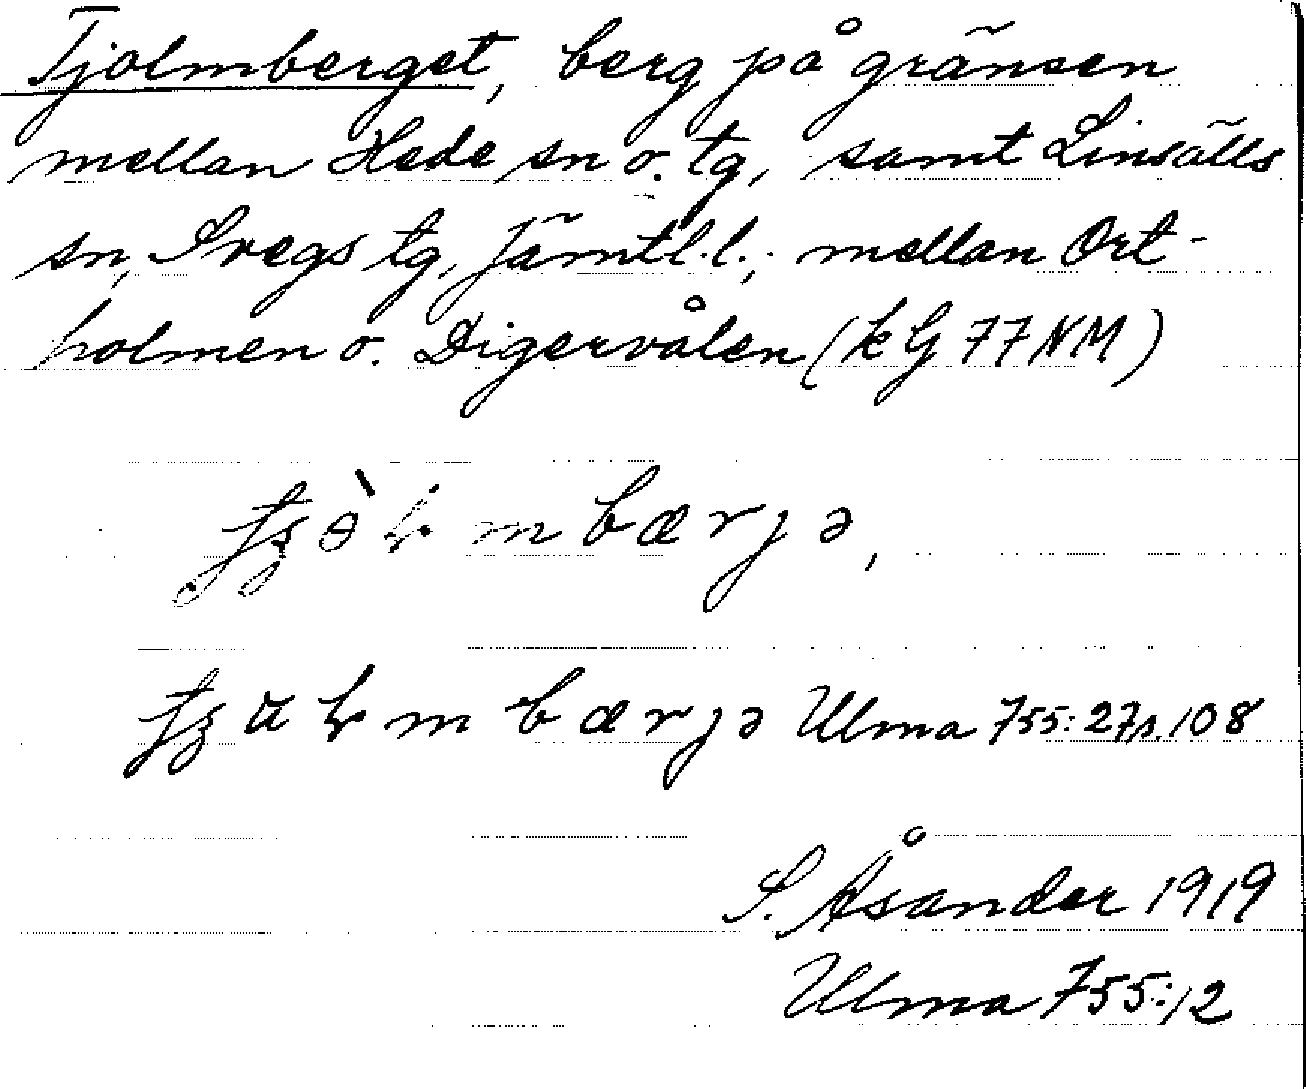 Tjolmberget, berg på gränsen
mellan Hede sn o. tg, samt Linsälls
sn, Svegs tg, Jämtl. l., mellan Ort-
holmen o. Digervålen (k G 77 NM)
bærjə,
bærjə Ulma 755:27 s. 108
S. Åsander 1919
Ulma 755:12